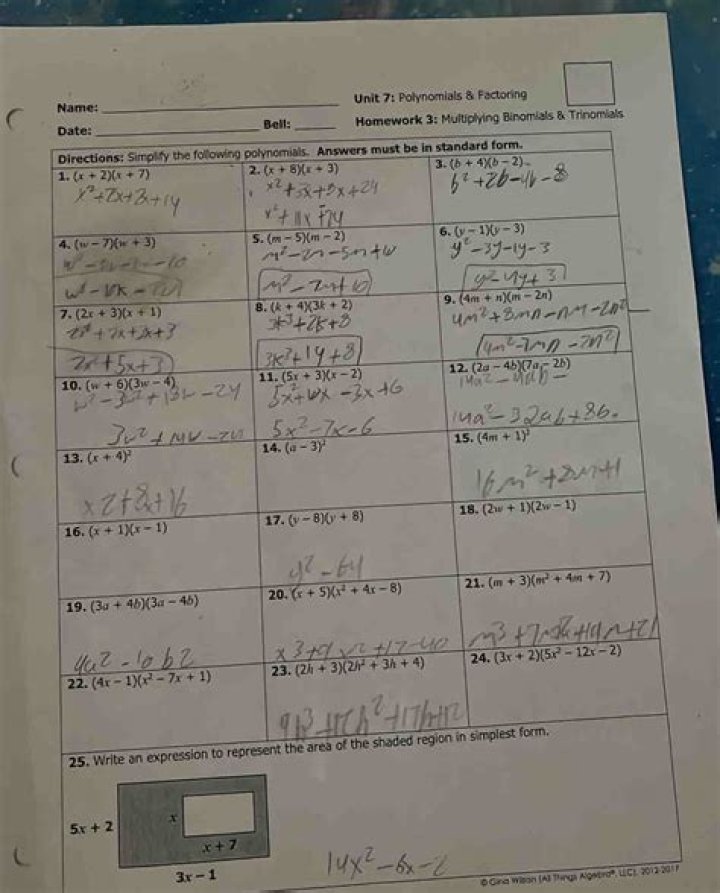 Unit 7: Polynomials & Factoring
Name:
Homework 3: Multiplying Binomials & Trinomials
Date: Bell:
Directions: Simplify the following polynomials. Answers must be in standard form.
1. (x + 2)(x + 7)
x²+7x+2x+14
2. (x + 8)(x + 3)
x²+3x+8x+24
x²+11x+24
3. (b + 4)(b − 2)
b²+2b-4b-8
4. (w − 7)(w + 3)
5. (m − 5)(m − 2)
6. (y − 1)(y − 3)
y²-3y-1y-3
y²-4y+3
7. (2x + 3)(x + 1)
2x²+5x+3
8. (k + 4)(3k + 2)
3k²+14+8
9. (4m + n)(m − 2n)
4m²+8mn-nm-2n²
4m²-7mn-2n²
10. (w + 6)(3w − 4)
11. (5x + 3)(x − 2)
5x²-7x-6
12. (2a − 4b)(7a − 2b)
14a²-32ab+8b
13. (x + 4)²
x2+8x+16
14. (a − 3)²
15. (4m + 1)²
16m²+8m+1
16. (x + 1)(x − 1)
17. (y − 8)(y + 8)
y²-64
18. (2w + 1)(2w − 1)
19. (3a + 4b)(3a − 4b)
20. (x + 5)(x² + 4x − 8)
21. (m + 3)(m² + 4m + 7)
22. (4x − 1)(x² − 7x + 1)
23. (2h + 3)(2h² + 3h + 4)
24. (3x + 2)(5x² − 12x − 2)
25. Write an expression to represent the area of the shaded region in simplest form.
5x + 2
x
x + 7
3x − 1
14x²-6x-2
© Gina Wilson (All Things Algebra®, LLC), 2012-2017